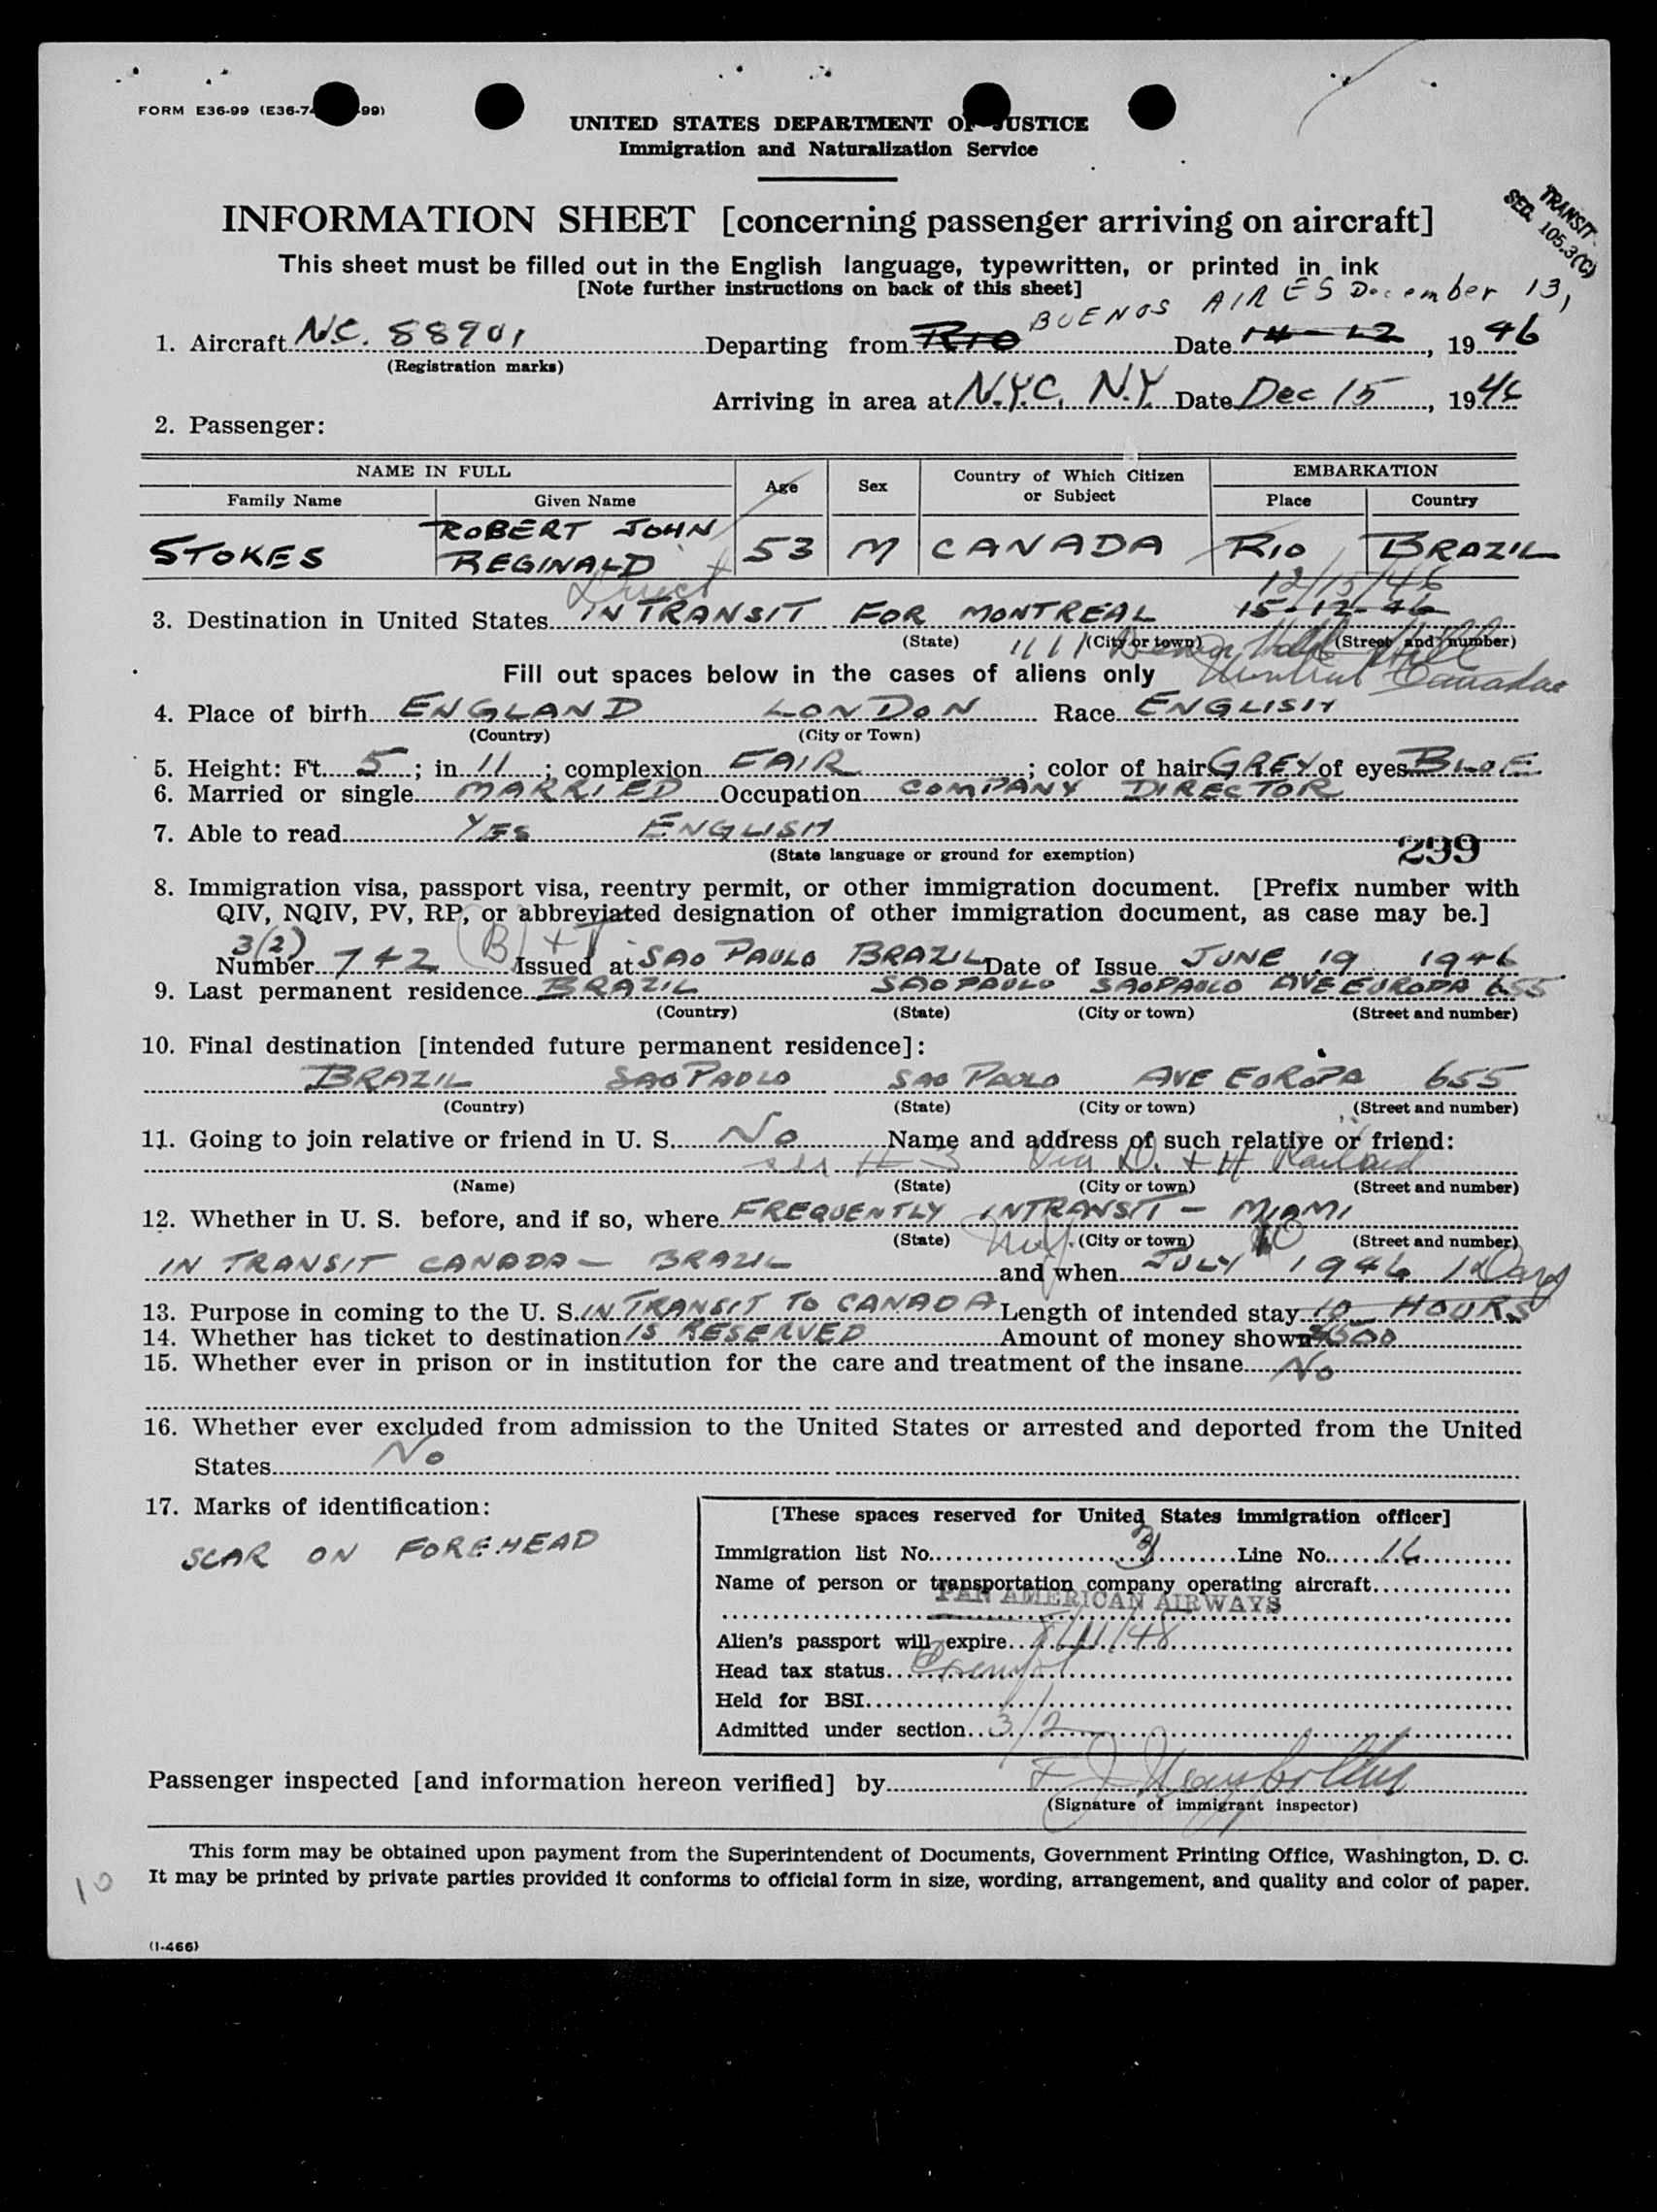 FORM E36-99 (E36-7 99)
UNITED STATES DEPARTMENT OF JUSTICE
Immigration and Naturalization Service
INFORMATION SHEET [concerning passenger arriving on aircraft]
TRANSIT
SEC. 105.3(C)
This sheet must be filled out in the English language, typewritten, or printed in ink
[Note further instructions on back of this sheet]
BUENOS AIRES December 13,
1. Aircraft NC. 88901 Departing from RIO Date 14-12, 1946
(Registration marks)
Arriving in area at N.Y.C. N.Y. Date Dec 15, 1946
2. Passenger:
NAME IN FULL Age Sex Country of Which Citizen or Subject EMBARKATION
Family Name Given Name Place Country
STOKES ROBERT JOHN REGINALD 53 M CANADA RIO BRAZIL
Direct 12/15/46
3. Destination in United States IN TRANSIT FOR MONTREAL 15-12-46
(State) (City or town) (Street and number)
1111 Hill
Montreal Canada
Fill out spaces below in the cases of aliens only
4. Place of birth ENGLAND LONDON Race ENGLISH
(Country) (City or Town)
5. Height: Ft. 5; in 11; complexion FAIR; color of hair GREY of eyes BLUE
6. Married or single MARRIED Occupation COMPANY DIRECTOR
7. Able to read YES ENGLISH
(State language or ground for exemption) 299
8. Immigration visa, passport visa, reentry permit, or other immigration document. [Prefix number with
QIV, NQIV, PV, RP, or abbreviated designation of other immigration document, as case may be.]
3(2) (B)
Number 742 Issued at SAO PAULO BRAZIL Date of Issue JUNE 19 1946
9. Last permanent residence BRAZIL SAO PAULO SAO PAULO AVE EUROPA 655
(Country) (State) (City or town) (Street and number)
10. Final destination [intended future permanent residence]:
BRAZIL SAO PAULO SAO PAULO AVE EUROPA 655
(Country) (State) (City or town) (Street and number)
11. Going to join relative or friend in U. S. No Name and address of such relative or friend:
see #3 Via D. + H Railroad
(Name) (State) (City or town) (Street and number)
12. Whether in U. S. before, and if so, where FREQUENTLY IN TRANSIT - MIAMI
(State) (City or town) (Street and number)
IN TRANSIT CANADA - BRAZIL and when JULY 1946
13. Purpose in coming to the U. S. IN TRANSIT TO CANADA Length of intended stay 10 HOURS
14. Whether has ticket to destination IS RESERVED Amount of money shown $500
15. Whether ever in prison or in institution for the care and treatment of the insane No
16. Whether ever excluded from admission to the United States or arrested and deported from the United
States No
17. Marks of identification:
SCAR ON FOREHEAD
[These spaces reserved for United States immigration officer]
Immigration list No. 3 Line No. 16
Name of person or transportation company operating aircraft
PAN AMERICAN AIRWAYS
Alien's passport will expire 8/11/48
Head tax status Exempt
Held for BSI
Admitted under section 3/2
Passenger inspected [and information hereon verified] by
(Signature of immigrant inspector)
This form may be obtained upon payment from the Superintendent of Documents, Government Printing Office, Washington, D. C.
It may be printed by private parties provided it conforms to official form in size, wording, arrangement, and quality and color of paper.
10
(I-466)